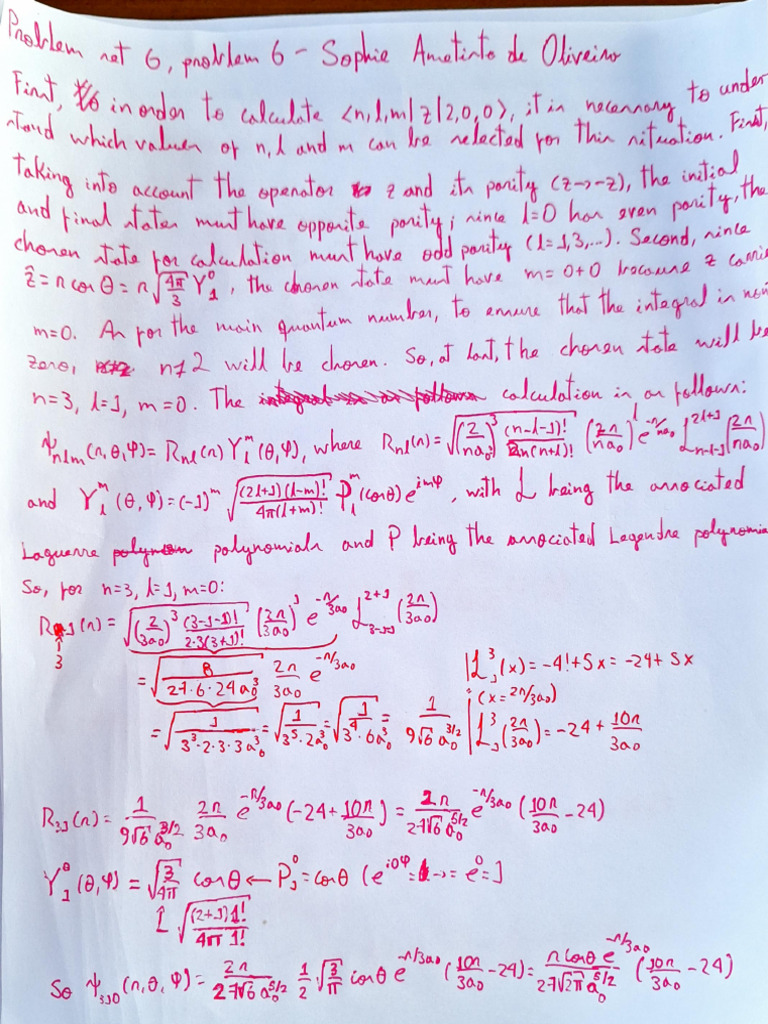 Problem set 6, problem 6 - Sophie Ametisto de Oliveira
First, in order to calculate ⟨n,l,m|z|2,0,0⟩, it is necessary to under
stand which values of n, l and m can be selected for this situation. First,
taking into account the operator z and its parity (z→-z), the initial
and final states must have opposite parity; since l=0 has even parity, the
chosen state for calculation must have odd parity (l=1,3,...). Second, since
ẑ = r cosθ = r√(4π/3) Y₁⁰, the chosen state must have m=0+0 because z carrie
m=0. As for the main quantum number, to ensure that the integral is non
zero, n≠2 will be chosen. So, at last, the chosen state will be
n=3, l=1, m=0. The calculation is as follows:
ψₙₗₘ(r,θ,φ) = Rₙₗ(r) Yₗᵐ(θ,φ), where Rₙₗ(r) = √((2/na₀)³ (n-l-1)!/2n(n+l)!) (2r/na₀)ˡ e^(-r/na₀) L_(n-l-1)^(2l+1) (2r/na₀)
and Yₗᵐ(θ,φ) = (-1)ᵐ √((2l+1)(l-m)!/4π(l+m)!) Pₗᵐ(cosθ) e^(imφ), with L being the associated
Laguerre polynomials and P being the associated Legendre polynomia
So, for n=3, l=1, m=0:
R₃₁(r) = √((2/3a₀)³ (3-1-1)!/2·3(3+1)!) (2r/3a₀)¹ e^(-r/3a₀) L_(3-1-1)^(2+1) (2r/3a₀)
↑
3
= √(8/27·6·24a₀³) 2r/3a₀ e^(-r/3a₀) | L₁³(x) = -4!+5x = -24+5x
(x=2r/3a₀)
= √(1/3³·2·3·3a₀³) = √(1/3⁵·2a₀³) = √(1/3⁴·6a₀³) = 1/9√6 a₀^(3/2) | L₁³(2r/3a₀) = -24 + 10r/3a₀
R₃₁(r) = 1/9√6 a₀^(3/2) 2r/3a₀ e^(-r/3a₀) (-24+10r/3a₀) = 2r/27√6 a₀^(5/2) e^(-r/3a₀) (10r/3a₀ - 24)
Y₁⁰(θ,φ) = √(3/4π) cosθ ← P₁⁰ = cosθ (e^(i0φ) = → = e⁰ = 1
√((2+1)1!/4π 1!)
So ψ₃₁₀(r,θ,φ) = 2r/27√6 a₀^(5/2) 1/2 √(3/π) cosθ e^(-r/3a₀) (10r/3a₀ - 24) = r cosθ e^(-r/3a₀)/27√(2π) a₀^(5/2) (10r/3a₀ - 24)